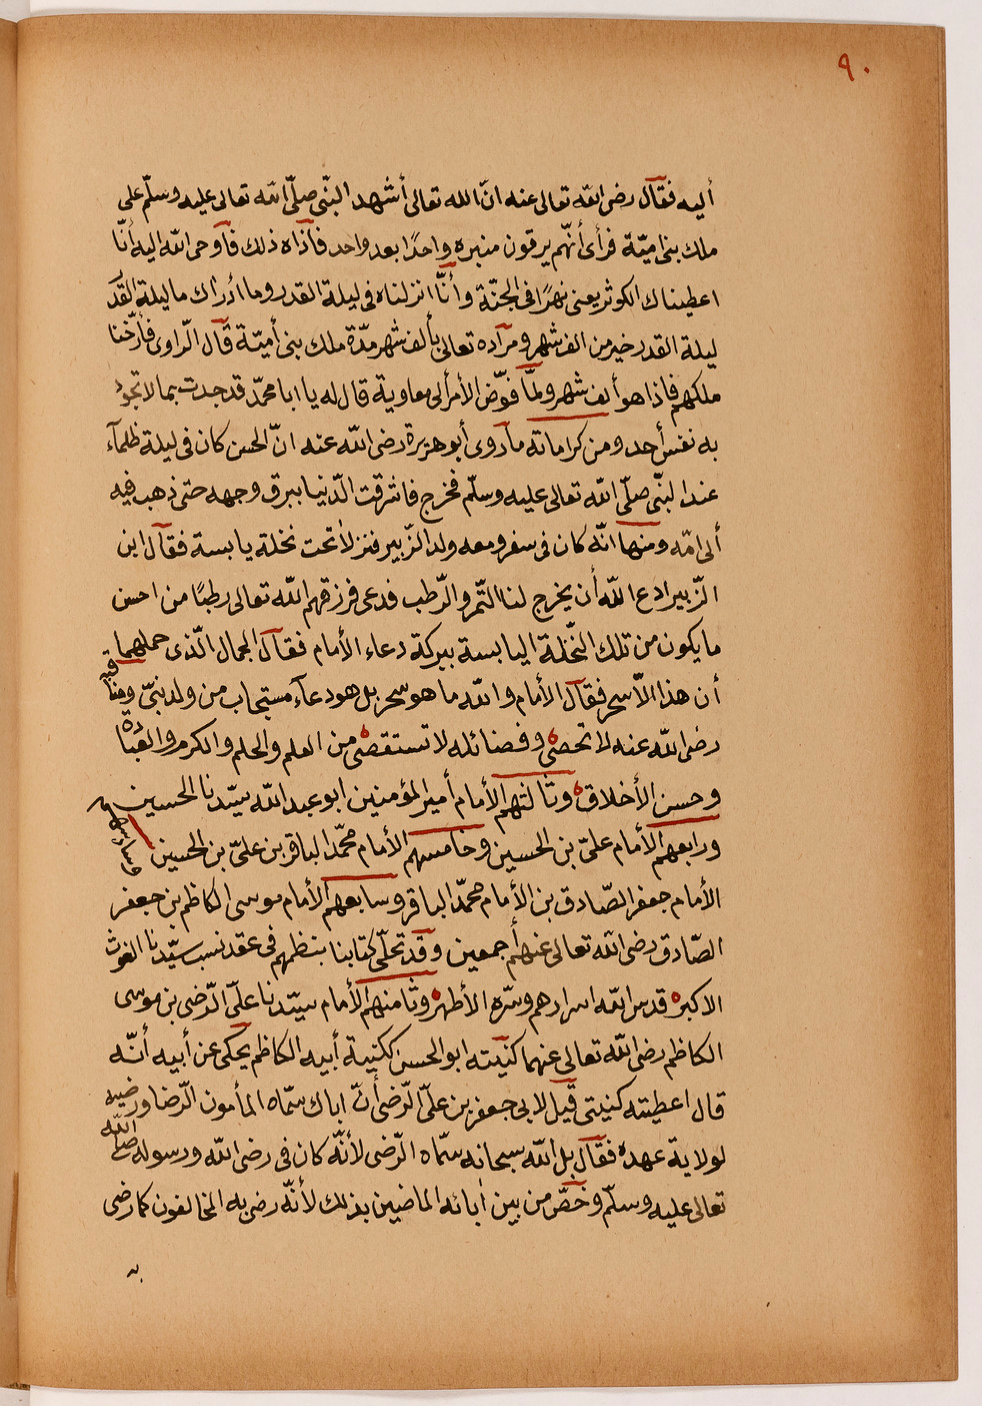 ٩٠
أليه فقال رضى الله تعالى عنه انّ الله تعالى أشهد النبّى صلّى الله تعالى عليه وسلّم على
ملك بنى اميّة فرأى أنّهم يرقون منبره واحدًا بعد واحد فآذاه ذلك فأوحى الله اليه أنّا
اعطيناك الكوثر يعنى نهرًا فى الجنّة وأنّا انزلناه فى ليلة القدر وما أدراك ما ليلة القد
ليلة القدر خير من الف شهر ومراده تعالى بألف شهر مدّة ملك بنى أميّة قال الرّاوى فأرّخنا
ملكهم فاذا هو ألف شهر ولمّا فوّض الأمر ألى معاوية قال له يا ابا محمّد قد جدت بما لا تجود
به نفس أحد ومن كراماته ما روى أبو هريرة رضى الله عنه انّ الحسن كان فى ليلة ظلمآء
عند النبّى صلّى الله تعالى عليه وسلّم فخرج فاشرقت الدّنيا ببرق وجهه حتى ذهب فيه
ألى امّه ومنها انّه كان فى سفر ومعه ولد الزّبير فنزلا تحت نخلة يابسة فقال ابن
الزّبير ادع الله أن يخرج لنا التّمر والرّطب فدعى فرزقهم الله تعالى رطبًا من احسن
ما يكون من تلك النّخلة اليابسة ببركة دعاء الأمام فقال الجمال الّذى حملهما
أن هذا الاّ سحر فقال الأمام والله ما هو سحر بل هو دعآء مستجاب من ولد نبىّ ومناقبه
رضى الله عنه لا تحصى وفضائله لا تستقصى من العلم والحلم والكرم والعبادة
وحسن الأخلاق وثالثهم الأمام أمير المؤمنين ابو عبد الله سيّدنا الحسين
ورابعهم الأمام علىّ بن الحسين وخامسهم الأمام محمّد الباقر بن علىّ بن الحسين وسادسهم
الأمام جعفر الصّادق بن الأمام محمّد الباقر وسابعهم الأمام موسى الكاظم بن جعفر
الصّادق رضى الله تعالى عنهم أجمعين وقد تحلّى كتابنا بنظمهم فى عقد نسب سيّدنا الغوث
الاكبر قدس الله اسرارهم وسرّه الأطهر وثامنهم الأمام سيّدنا علّى الرّضى بن موسى
الكاظم رضى الله تعالى عنهما كنيته ابو الحسن ككنية أبيه الكاظم يحكى عن أبيه أنّه
قال اعطيته كنيتى قيل لابى جعفر بن علّى الرّضى أنّ اباك سمّاه المأمون الرّضا ورضيه
لولاية عهده فقال بل الله سبحانه سمّاه الرّضى لأنّه كان فى رضى الله ورسوله صلى الله
تعالى عليه وسلّم وخصّ من بين أبائه الماضين بذلك لأنّه رضى به المخالفون كما رضى
به